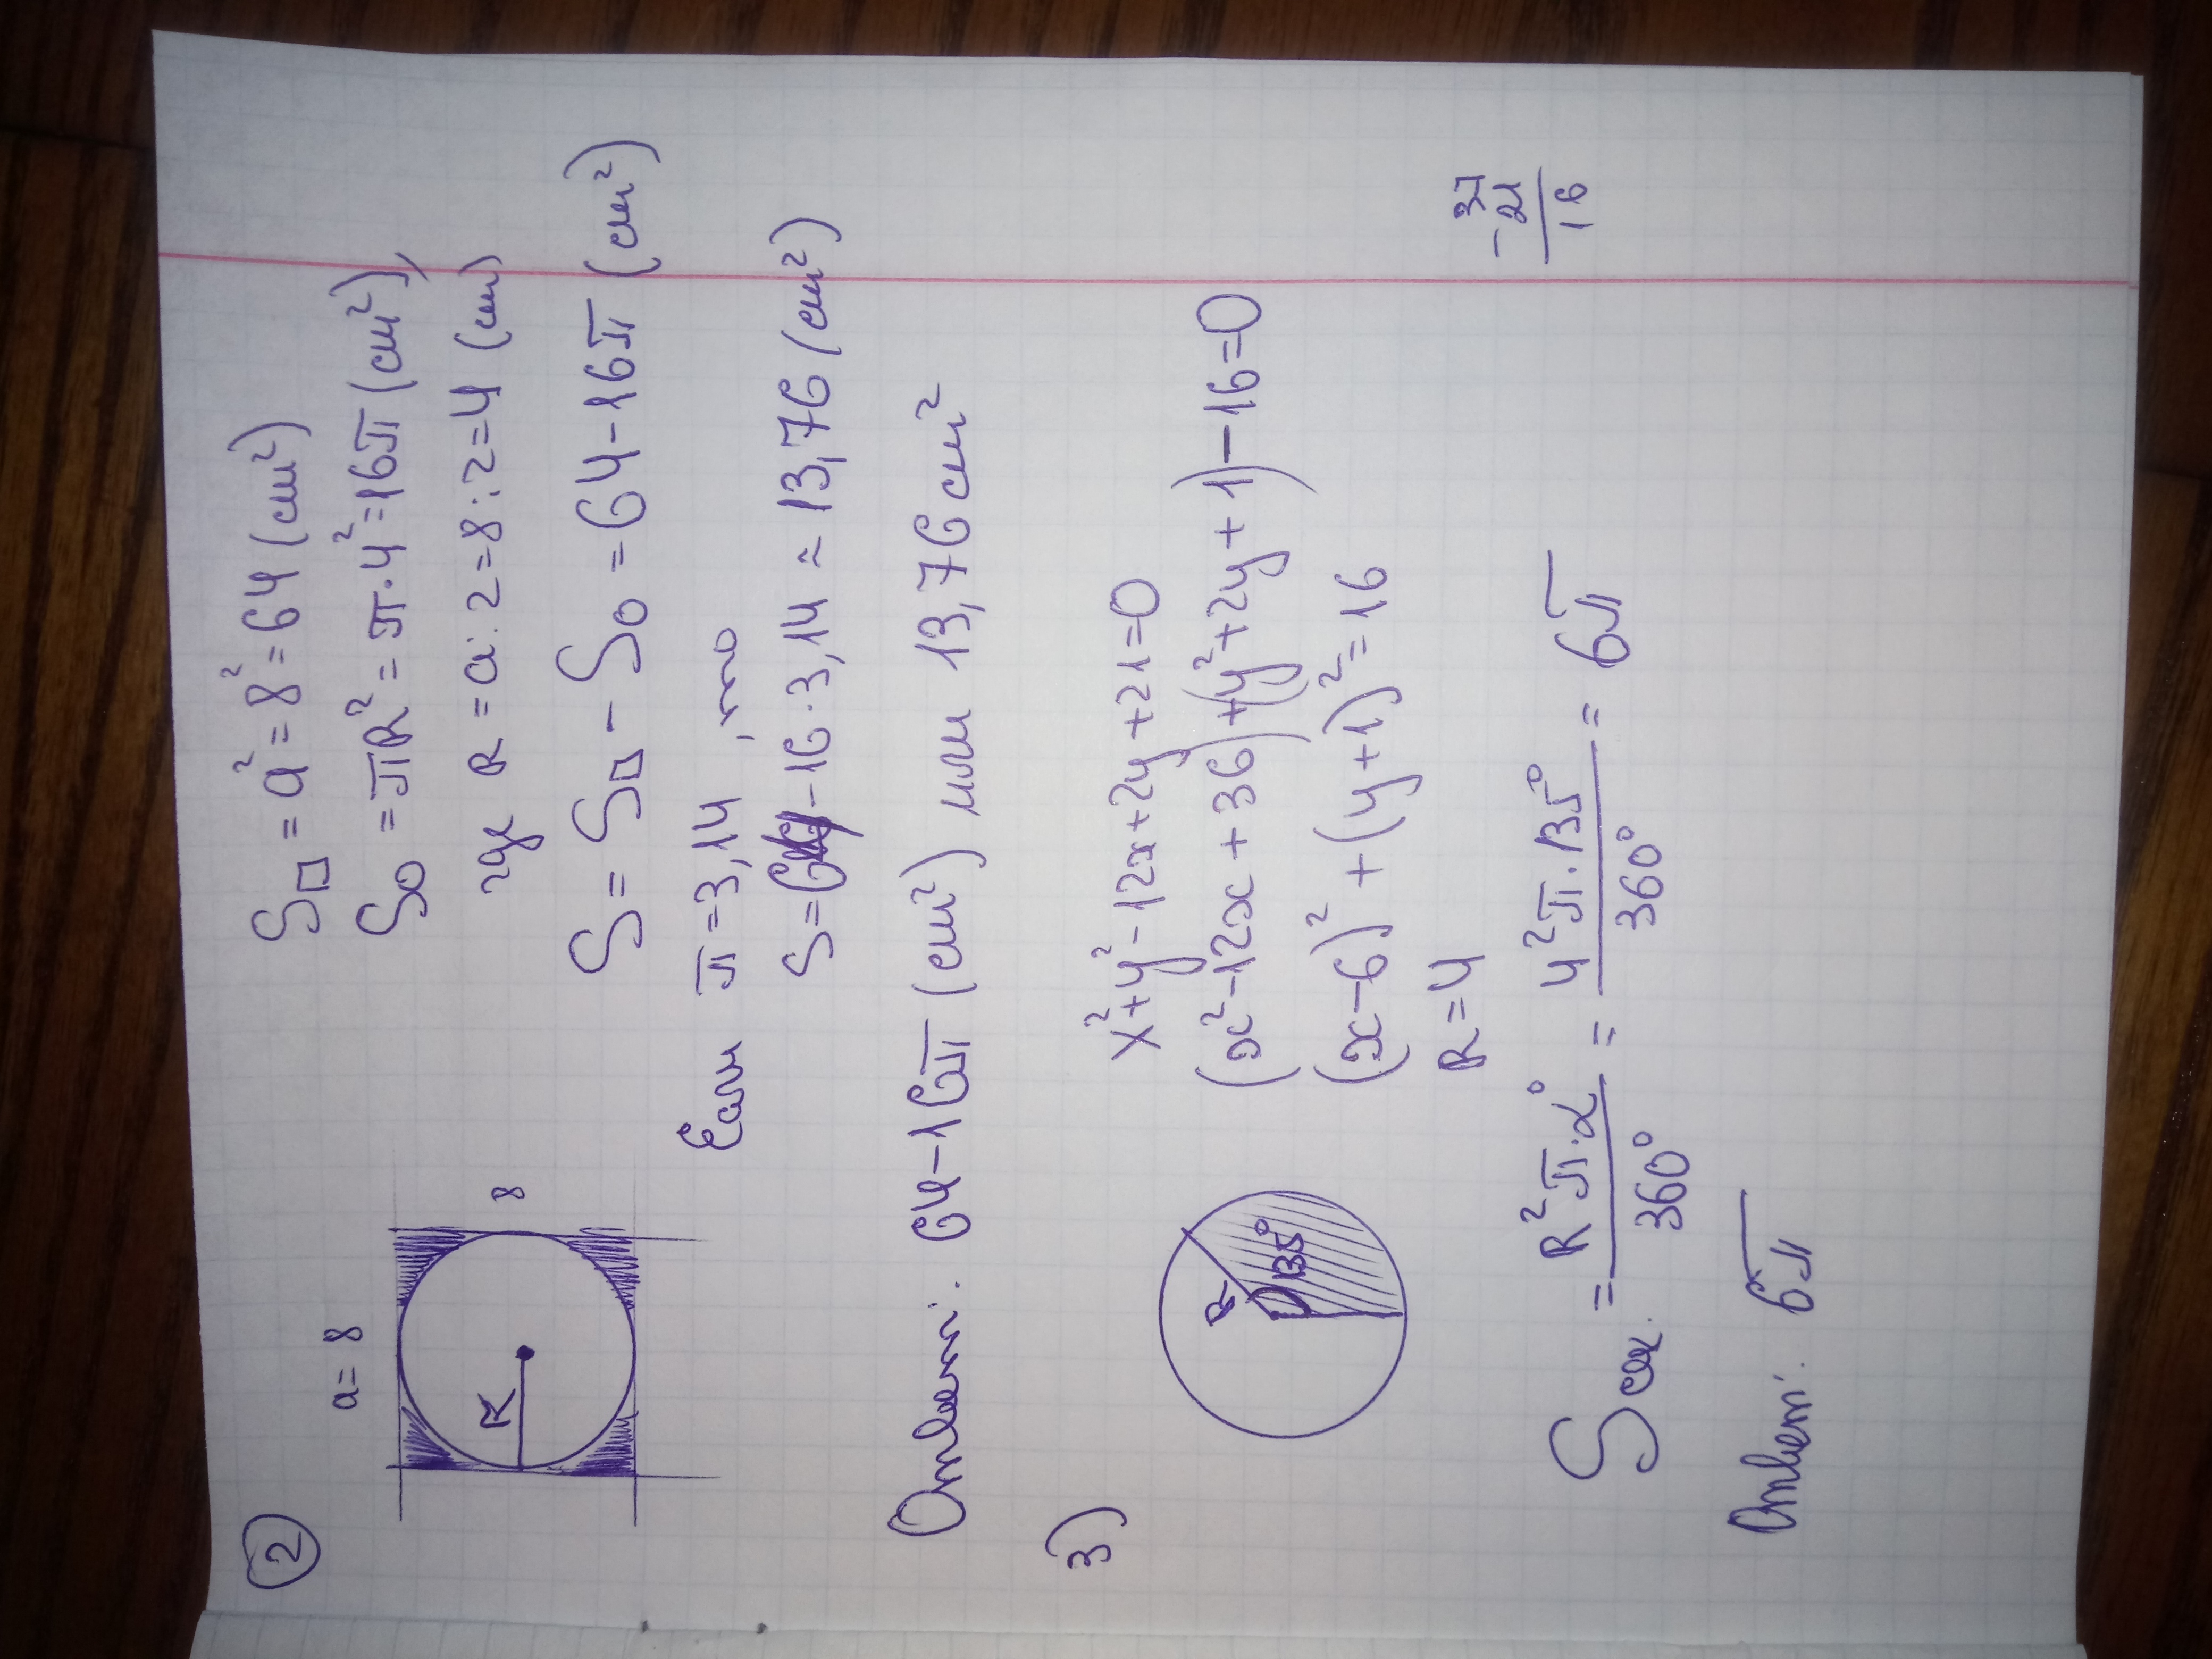 2
S□ = a² = 8² = 64 (см²)
a = 8
S○ = πR² = π·4² = 16π (см²),
R
8
где R = a : 2 = 8 : 2 = 4 (см)
S = S□ - S○ = 64 - 16π (см²)
Если π = 3,14, то
S = 64 - 16·3,14 ≈ 13,76 (см²)
Ответ: 64 - 16π (см²) или 13,76 см²
3)
x² + y² - 12x + 2y + 21 = 0
R
135°
(x² - 12x + 36) + (y² + 2y + 1) - 16 = 0
(x - 6)² + (y + 1)² = 16
R = 4
37
- 21
16
S сек. = R²π·α° / 360° = 4²π·135° / 360° = 6π
Ответ: 6π